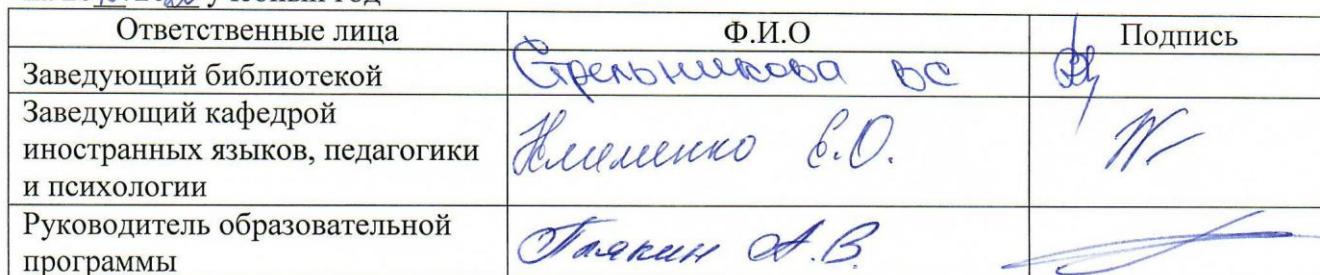 учебный год
Ответственные лица Ф.И.О Подпись
Заведующий библиотекой Стрельникова ВС
Заведующий кафедрой
иностранных языков, педагогики Клименко Е.О.
и психологии
Руководитель образовательной
программы А.В.